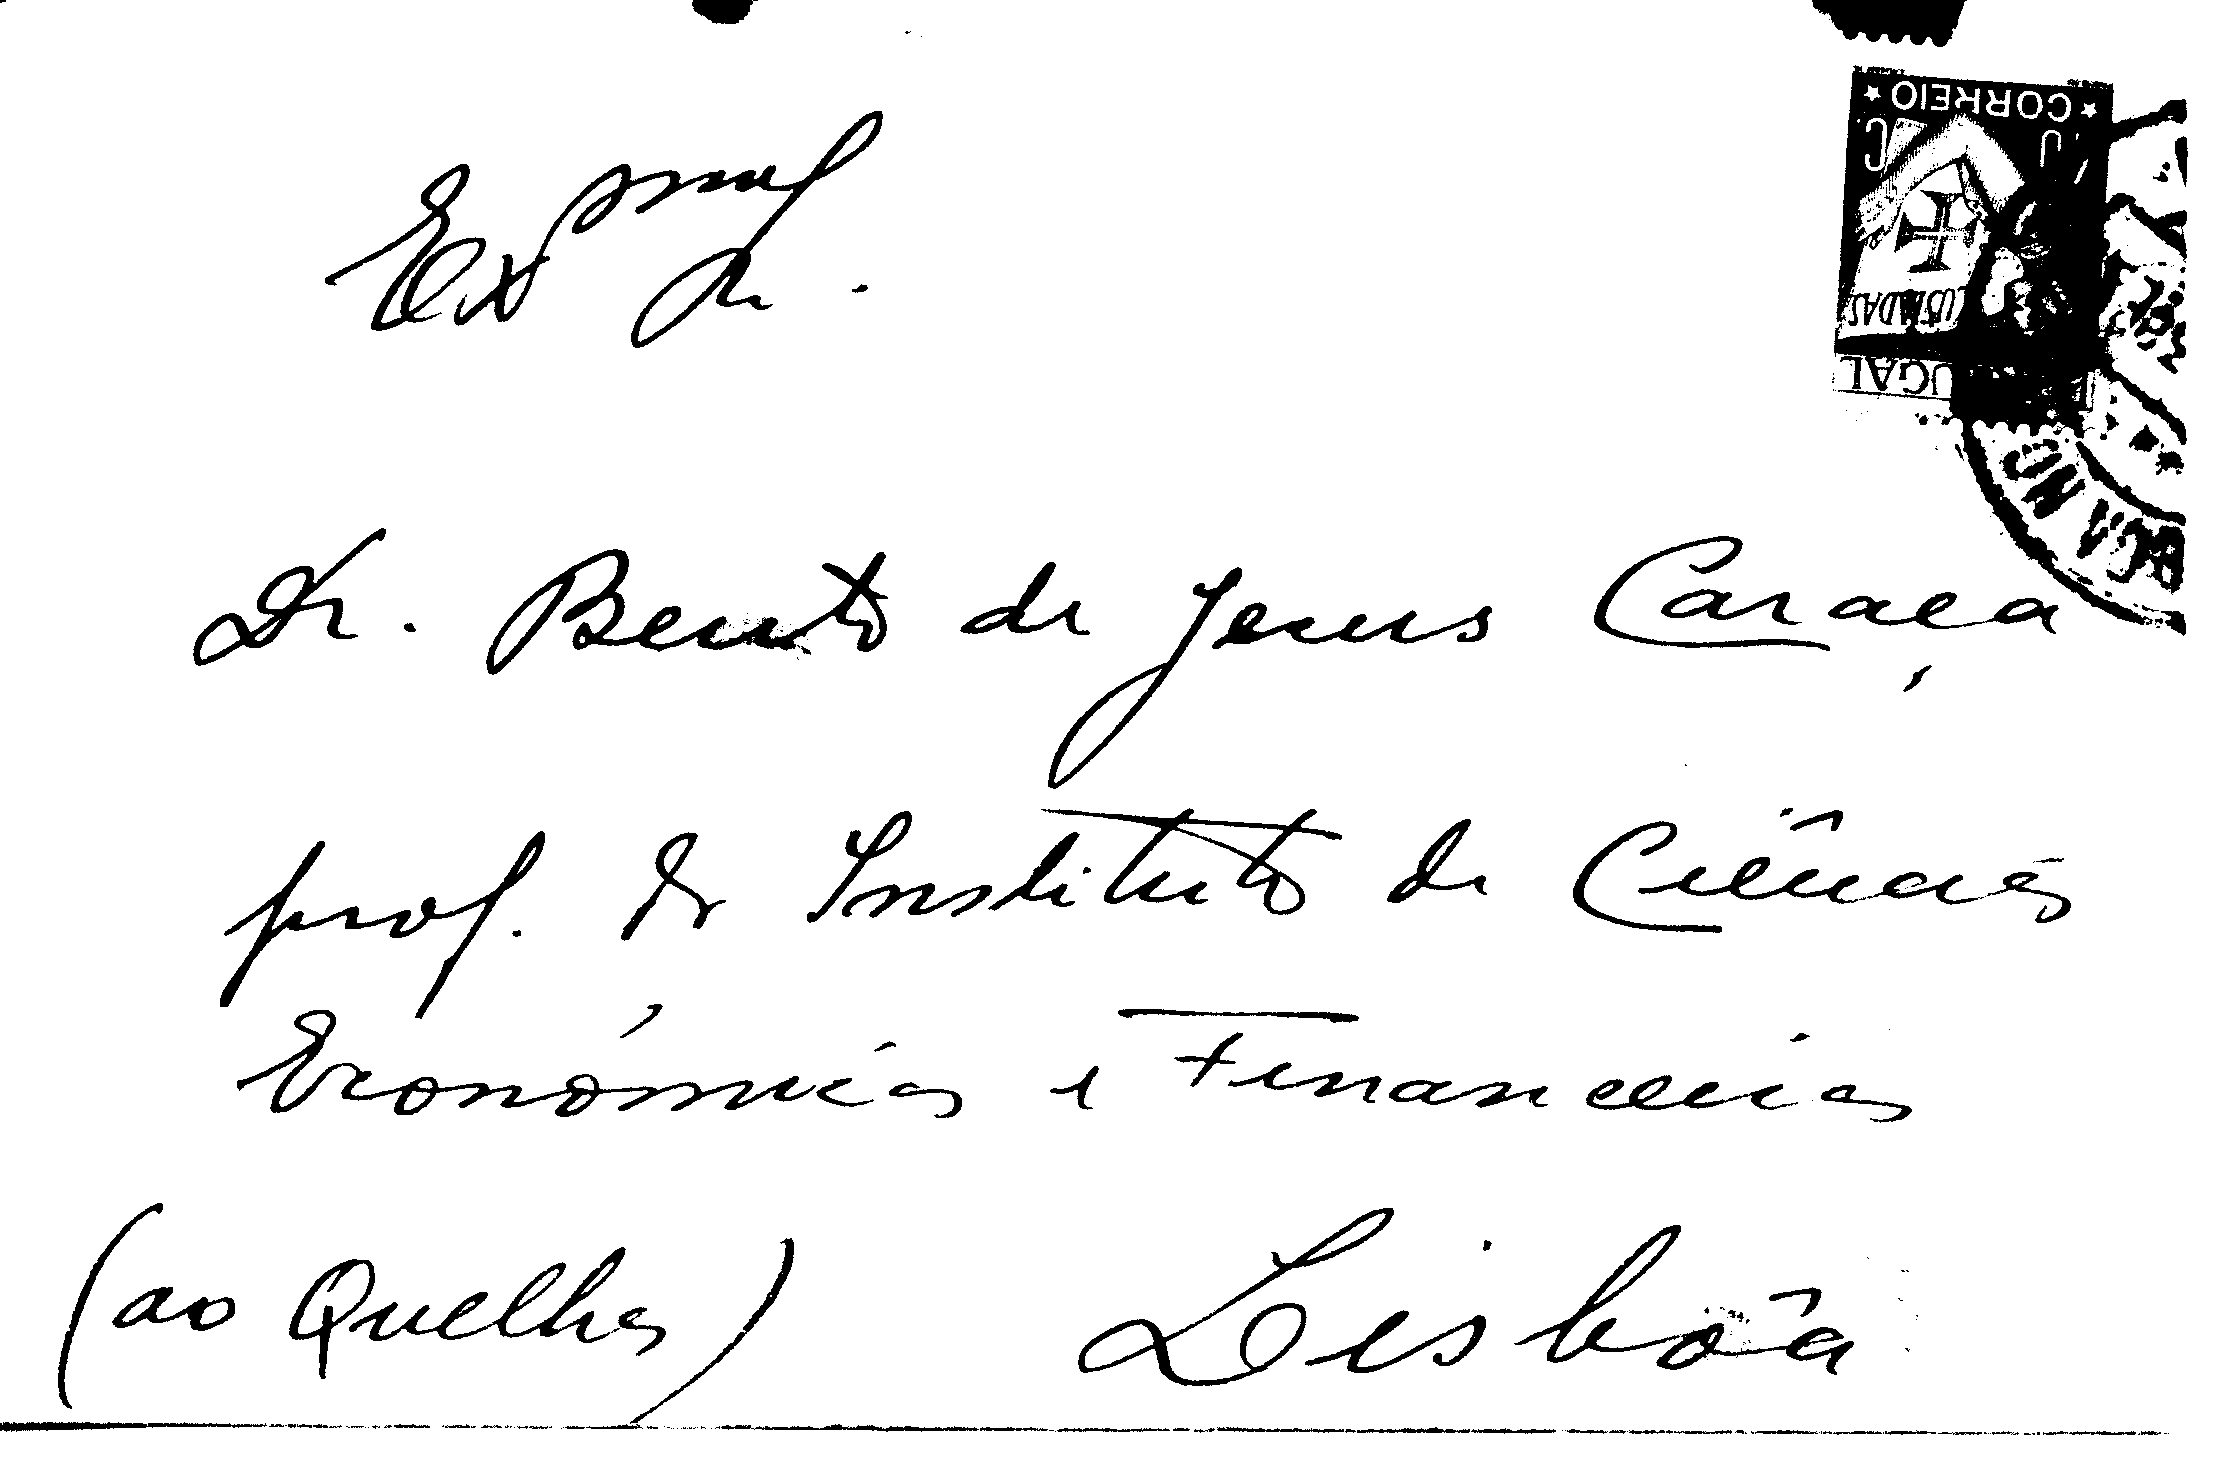 Exmo Sr.
CORREIO
LUSIADAS
Dr. Bento de Jesus Caraça
prof. do Instituto de Ciências
Económicas e Financeiras
(ao Quelhas) Lisbôa